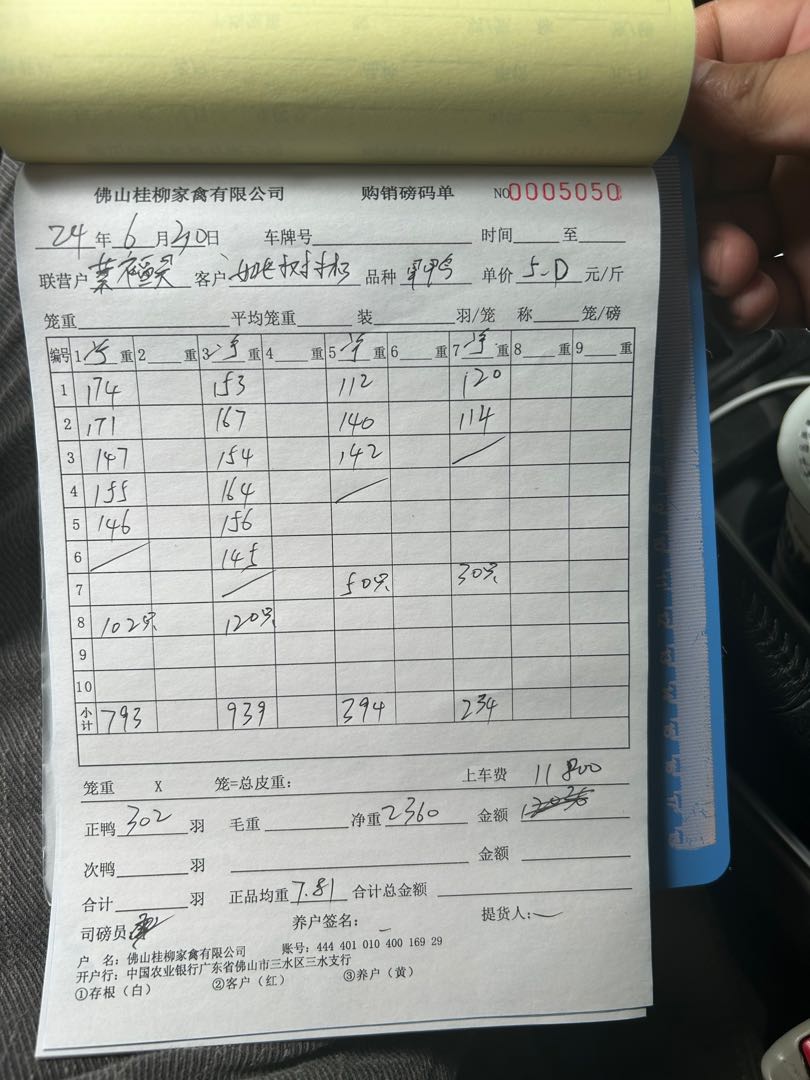 佛山桂柳家禽有限公司 购销磅码单 NO0005050
24年6月30日 车牌号 时间 至
联营户 客户 品种 单价5.0元/斤
笼重 平均笼重 装 羽/笼 称 笼/磅
编号 1净重 2 重 3净重 4 重 5净重 6 重 7净重 8 重 9 重
1 174 153 112 120
2 171 167 140 114
3 147 154 142
4 155 164
5 146 156
6 145
7 50只 30只
8 102只 120只
9
10
小计 793 939 394 234
笼重 X 笼=总皮重: 上车费 11800
正鸭302羽 毛重 净重2360 金额
次鸭 羽 金额
合计 羽 正品均重7.81 合计总金额
司磅员 养户签名: 提货人:
户 名: 佛山桂柳家禽有限公司 账号: 444 401 010 400 169 29
开户行: 中国农业银行广东省佛山市三水区三水支行
①存根(白) ②客户(红) ③养户(黄)